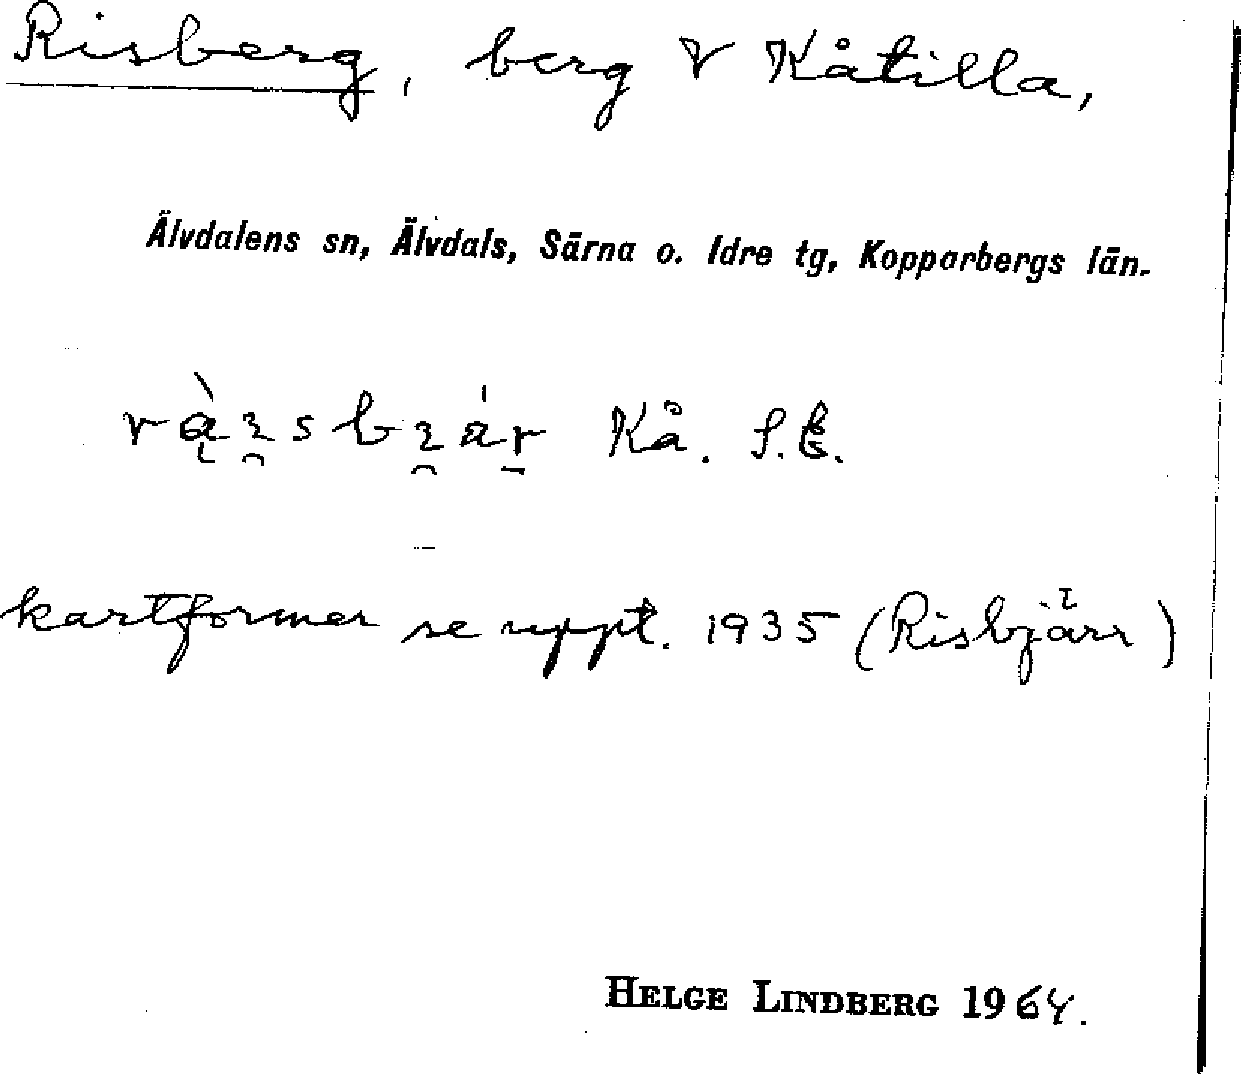 Risberg, berg V Kåtilla,
Älvdalens sn, Älvdals, Särna o. Idre tg, Kopparbergs län.
Kå.
kartformer se uppt. 1935 (Risbjärr)
HELGE LINDBERG 1964.